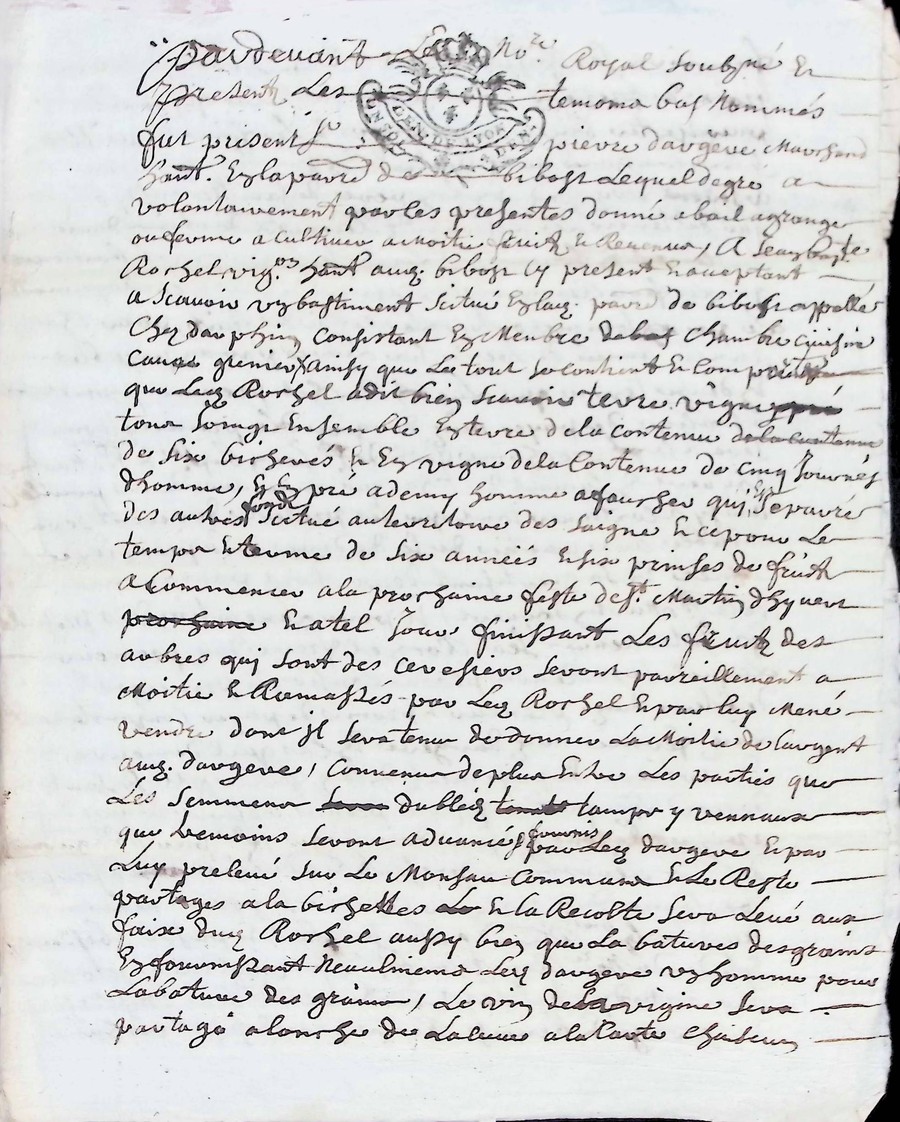 pardevant Le No.re Royal soubzné Et
présent Les temoins bas Nommés
fut présent Sr pierre dargéve Marchand
hant. En la parr. de bibost Lequel de gré a
volontairement par les présentes donné a bail a grange
ou ferme a cultiver a Moitié fruit Et Revenus, A Jean bap.te
Rochel vig.on hant aud. bibost Cy présent Et acceptant
a Scavoir un bastiment Scitué En lad. parr. de bibost appellé
Chez dauphin Consistant En Membre de bas Chambre Cuisine
Cave grenier ainsy que Le tout Se contient Et Comporte
que Led. Rochel a dit bien Scavoir terre vigne pré
tous Joings Ensemble En terre de la Contenue de la Contenue
de Six bicherés Et En vigne de la Contenue de Cinq Journés
d'homme, Et En pré a demy homme a faucher qui Est Separé
des autres fonds Scitué au territoire des Saigne Et ce pour Le
temps Et terme de Six années Et Six prinses de fruit
a Commencer a la prochaine feste de St. Martin d'hyvert
prochaine Et a tel Jour finissant Les fruit des
arbres qui sont des ceresiers Seront pareillement a
Moitié Et Ramassés par Led. Rochel Et par luy Mené
vendre dont il Sera tenu de donner La Moitié de l'argent
aud. dargéve, Convenu de plus Entre Les parties que
Les Semmens dubled tramois y vennaux
que tremoins seront advancés fournis par Led. dargeve Et par
Luy prelevé Sur Le Monsau Commun Et Le Reste
partagés a la bichettes Et la Recolte Sera Levé aux
faix dud. Rochel aussy bien que La batures des grains
En fournissant Neaulmiens Led. dargeve un homme pour
La bature des grains, Le vin de la vigine Sera
partagé a lanche de La cuve